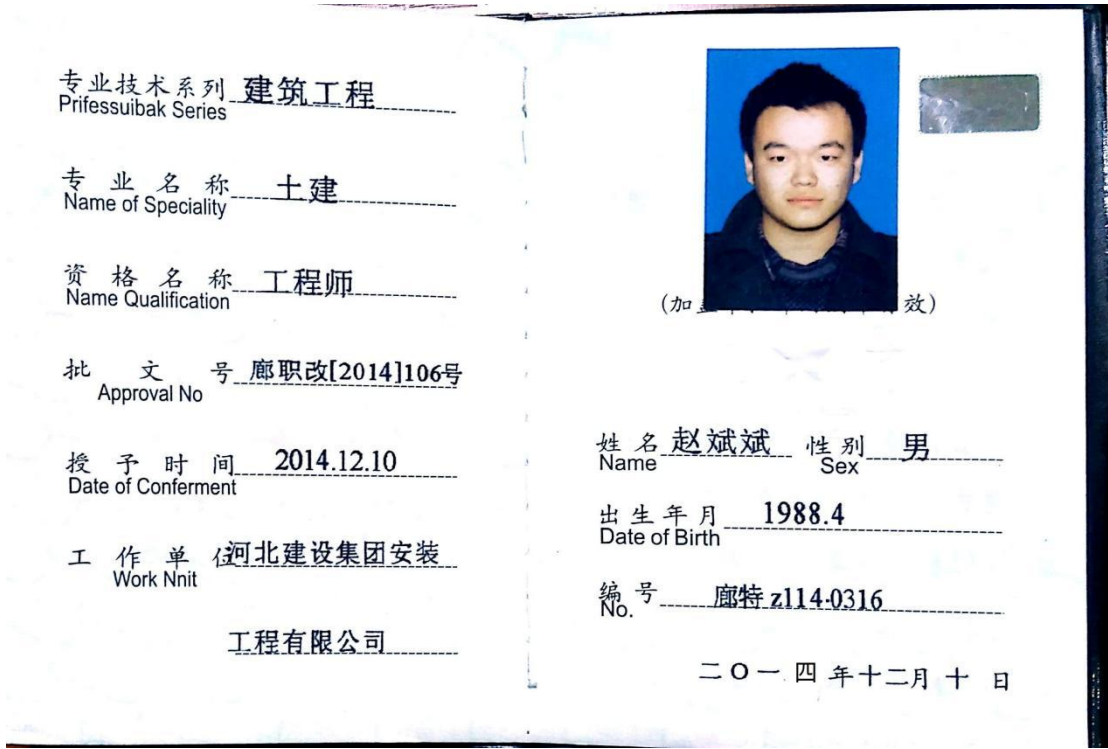 专业技术系列 建筑工程
Prifessuibak Series
专业名称 土建
Name of Speciality
资格名称 工程师
Name Qualification
批文号 廊职改[2014]106号
Approval No
授予时间 2014.12.10
Date of Conferment
工作单位 河北建设集团安装
Work Nnit
工程有限公司
(加 效)
姓名 赵斌斌 性别 男
Name Sex
出生年月 1988.4
Date of Birth
编号 廊特 z114-0316
No.
二〇一四年十二月十日